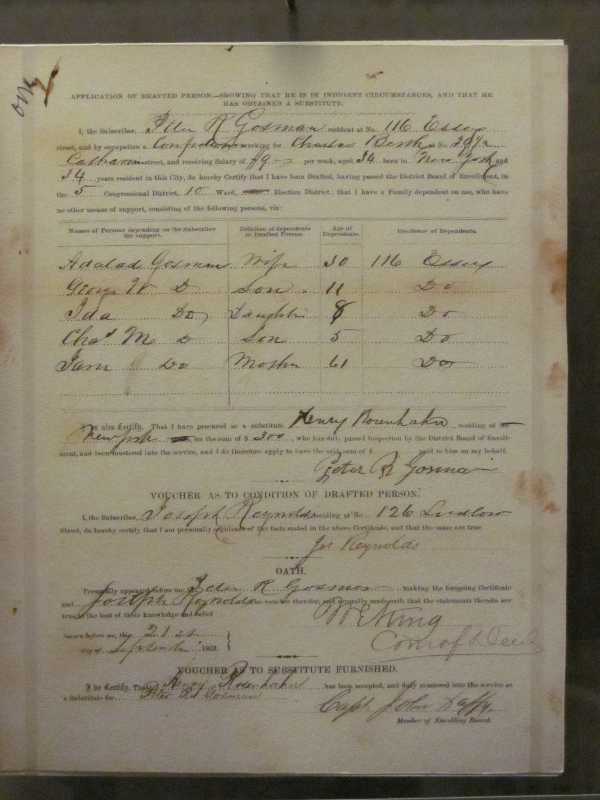 APPLICATION OF DRAFTED PERSON—SHOWING THAT HE IS IN INDIGENT CIRCUMSTANCES, AND THAT HE
HAS OBTAINED A SUBSTITUTE.
I, the Subscriber, Peter R Gosman resident at No. 116 Essex
street, and by occupation a working for Charles
Catharine street, and receiving Salary of $9 per week, aged 34 born in New York and
34 years resident in this City, do hereby Certify that I have been Drafted, having passed the District Board of Enrollment, in
the 5 Congressional District, 10 Ward, Election District; that I have a Family dependent on me, who have
no other means of support, consisting of the following persons, viz:
Names of Persons depending on the Subscriber for support. Relation of dependents to Drafted Person. Age of Dependents. Residence of Dependents.
Gosman Wife 30 116 Essex
George W Do Son 11 Do
Ida Do Daughter 8 Do
Chas M Do Son 5 Do
Jane Do Mother 61 Do
I also Certify, That I have procured as a substitute Henry Rosenhahn, residing at
New York for the sum of $ 300, who has duly passed Inspection by the District Board of Enrollment,
and been mustered into the service, and I do therefore apply to have the said sum of $ paid to him on my behalf.
Peter R Gosman
VOUCHER AS TO CONDITION OF DRAFTED PERSON.
I, the Subscriber, Joseph Reynolds residing at No. 126 Ludlow
Street, do hereby certify that I am personally cognizant of the facts stated in the above Certificate, and that the same are true
Jos Reynolds
OATH.
Personally appeared before me Peter R Gosman making the foregoing Certificate
and Joseph Reynolds the voucher thereto, and severally made oath that the statements therein are
true to the best of their knowledge and belief
Sworn before me, this 21st
day September 1863.
King
Com of Deeds
VOUCHER AS TO SUBSTITUTE FURNISHED.
I do Certify, That Henry Rosenhahn has been accepted, and duly mustered into the service as
a Substitute for Peter R Gosman
Capt John Duffy
Member of Enrolling Board.